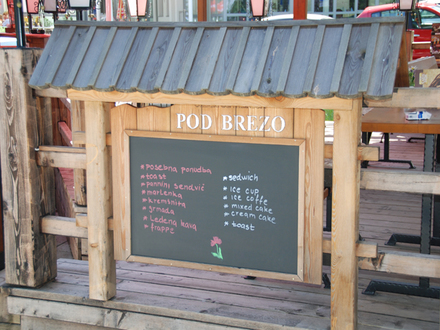 POD BREZO
*posebna ponudba
*toast
*panini sendvič
*marlenka
*kremšnita
*Ledena kava
*frappe
*sedwich
*ICE CUP
*ice coffe
*mixed cake
*cream cake
*toast